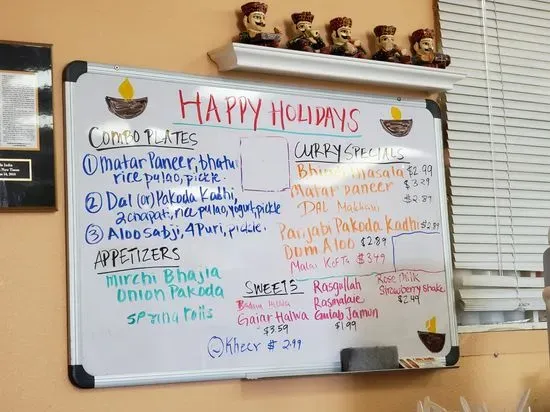 HAPPY HOLIDAYS
COMBO PLATES
① Matar Paneer, bhatu
rice pulao, pickle.
② Dal (or) Pakoda Kadhi,
2 chapati, rice pulao, yogurt, pickle
③ Aloo Sabji, 4 Puri, pickle.
APPETIZERS
Mirchi Bhajia
Onion Pakoda
Spring Rolls
CURRY SPECIALS
Bhindi Masala $2.99
Matar paneer $3.29
DAL Makhani $2.89
Panjabi Pakoda Kadhi $2.89
Dom Aloo $2.89
Malai Kofta $3.49
SWEETS
Gajar Halwa
$3.59
Rasgollah
Rasmalaie
Gulab Jamun
$1.99
Rose Milk
Strawberry shake
$2.49
Kheer $ 2.99